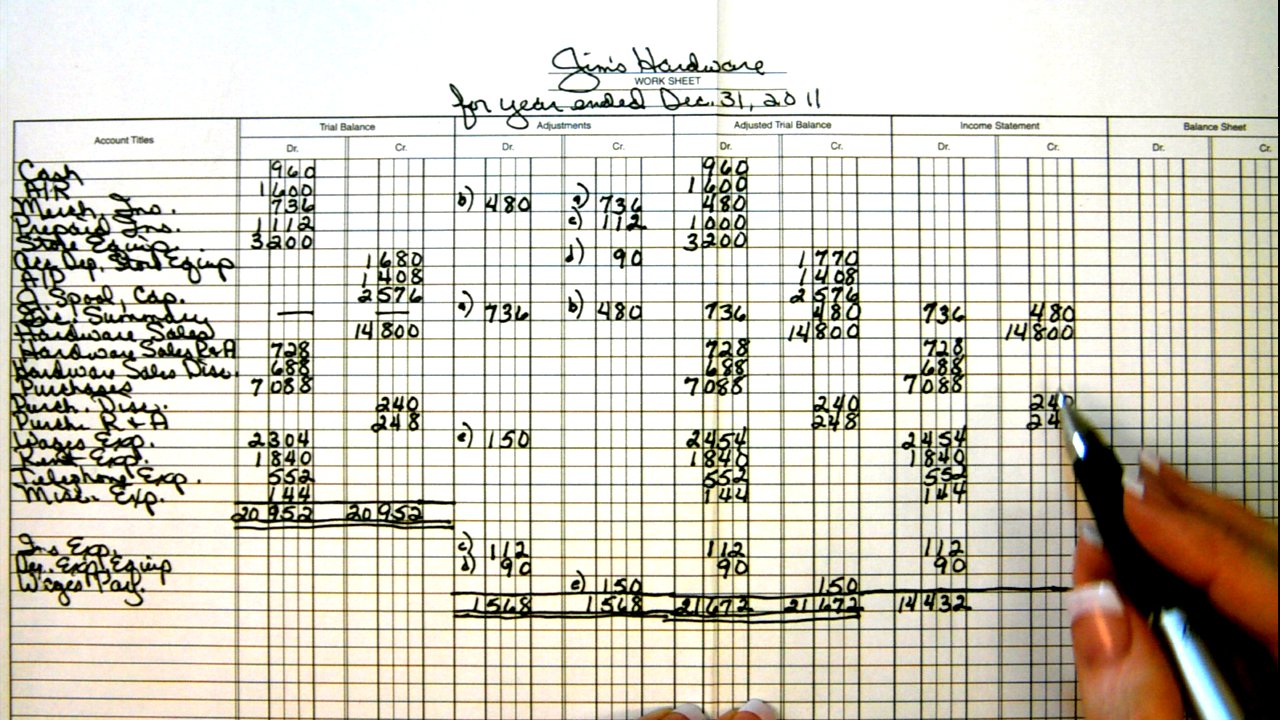 Jim's Hardware
WORK SHEET
for year ended Dec. 31, 2011
Account Titles Trial Balance Adjustments Adjusted Trial Balance Income Statement Balance Sheet
Dr. Cr. Dr. Cr. Dr. Cr. Dr. Cr. Dr. Cr.
Cash 960 960
A/R 1600 1600
Merch. Ins. 736 b) 480 a) 736 480
Prepaid Ins. 1112 c) 112 1000
Store Equip. 3200 3200
Acc. Dep. Store Equip 1680 d) 90 1770
A/P 1408 1408
Spool, Cap. 2576 2576
Summary — — a) 736 b) 480 736 480 736 480
Hardware Sales 14800 14800 14800
Hardware Sales R+A 728 728 728
Hardware Sales Disc. 688 688 688
Purchases 7088 7088 7088
Purch. Disc. 240 240 240
Purch. R+A 248 248 24
Wages Exp. 2304 e) 150 2454 2454
Rent Exp. 1840 1840 1840
Telephone Exp. 552 552 552
Misc. Exp. 144 144 144
20952 20952
Ins Exp. c) 112 112 112
Dep. Exp. Equip d) 90 90 90
Wages Pay. e) 150 150
1568 1568 21672 21672 14432